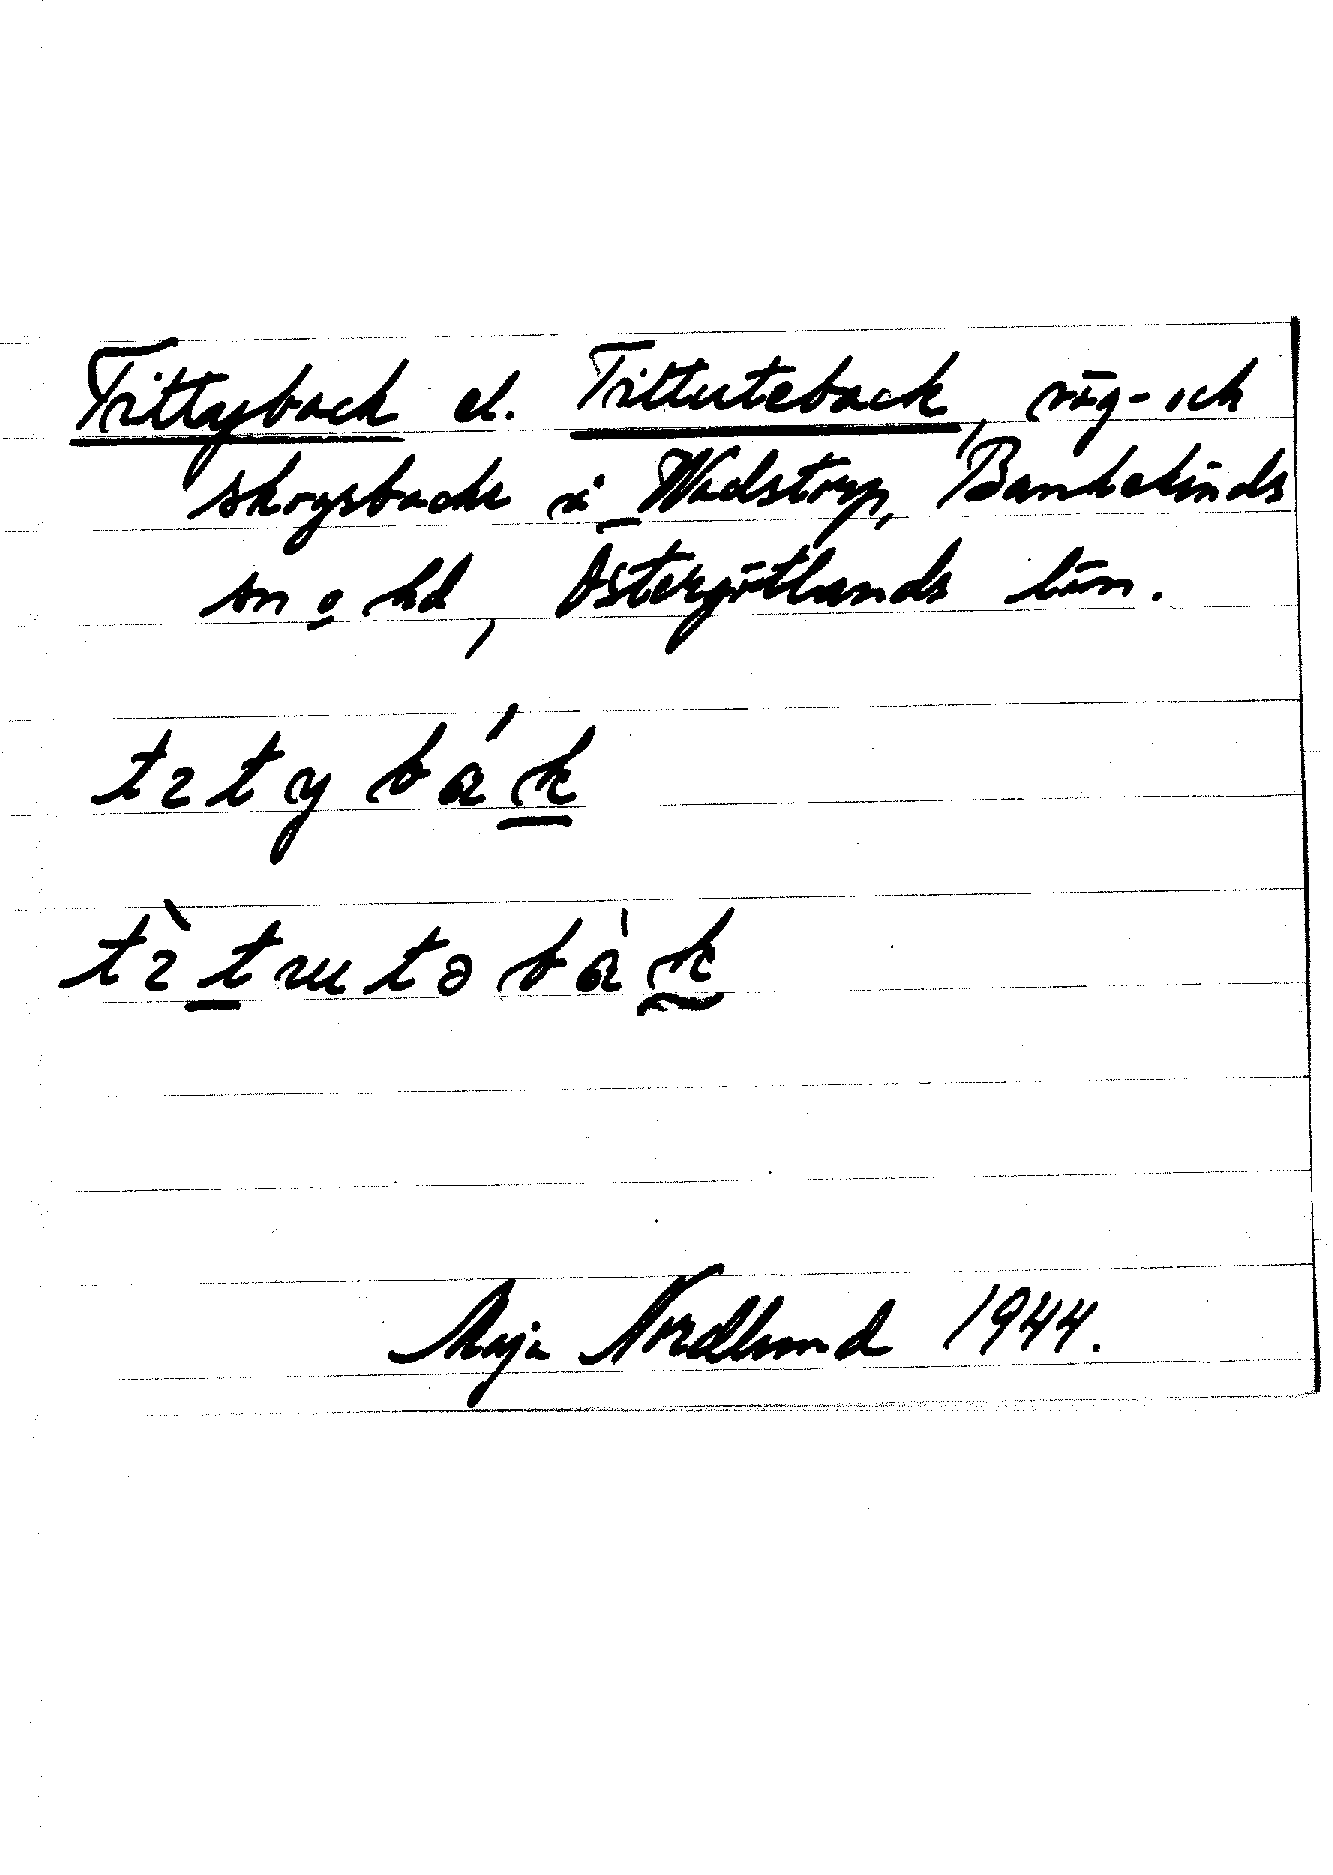 Tittyback el. Tittuteback, väg- och
skogsbacke å Wadstorp, Bankekinds
sn o hd, Östergötlands län.
tıtybák
tı̀tutəbàk
Maja Nordlund 1944.